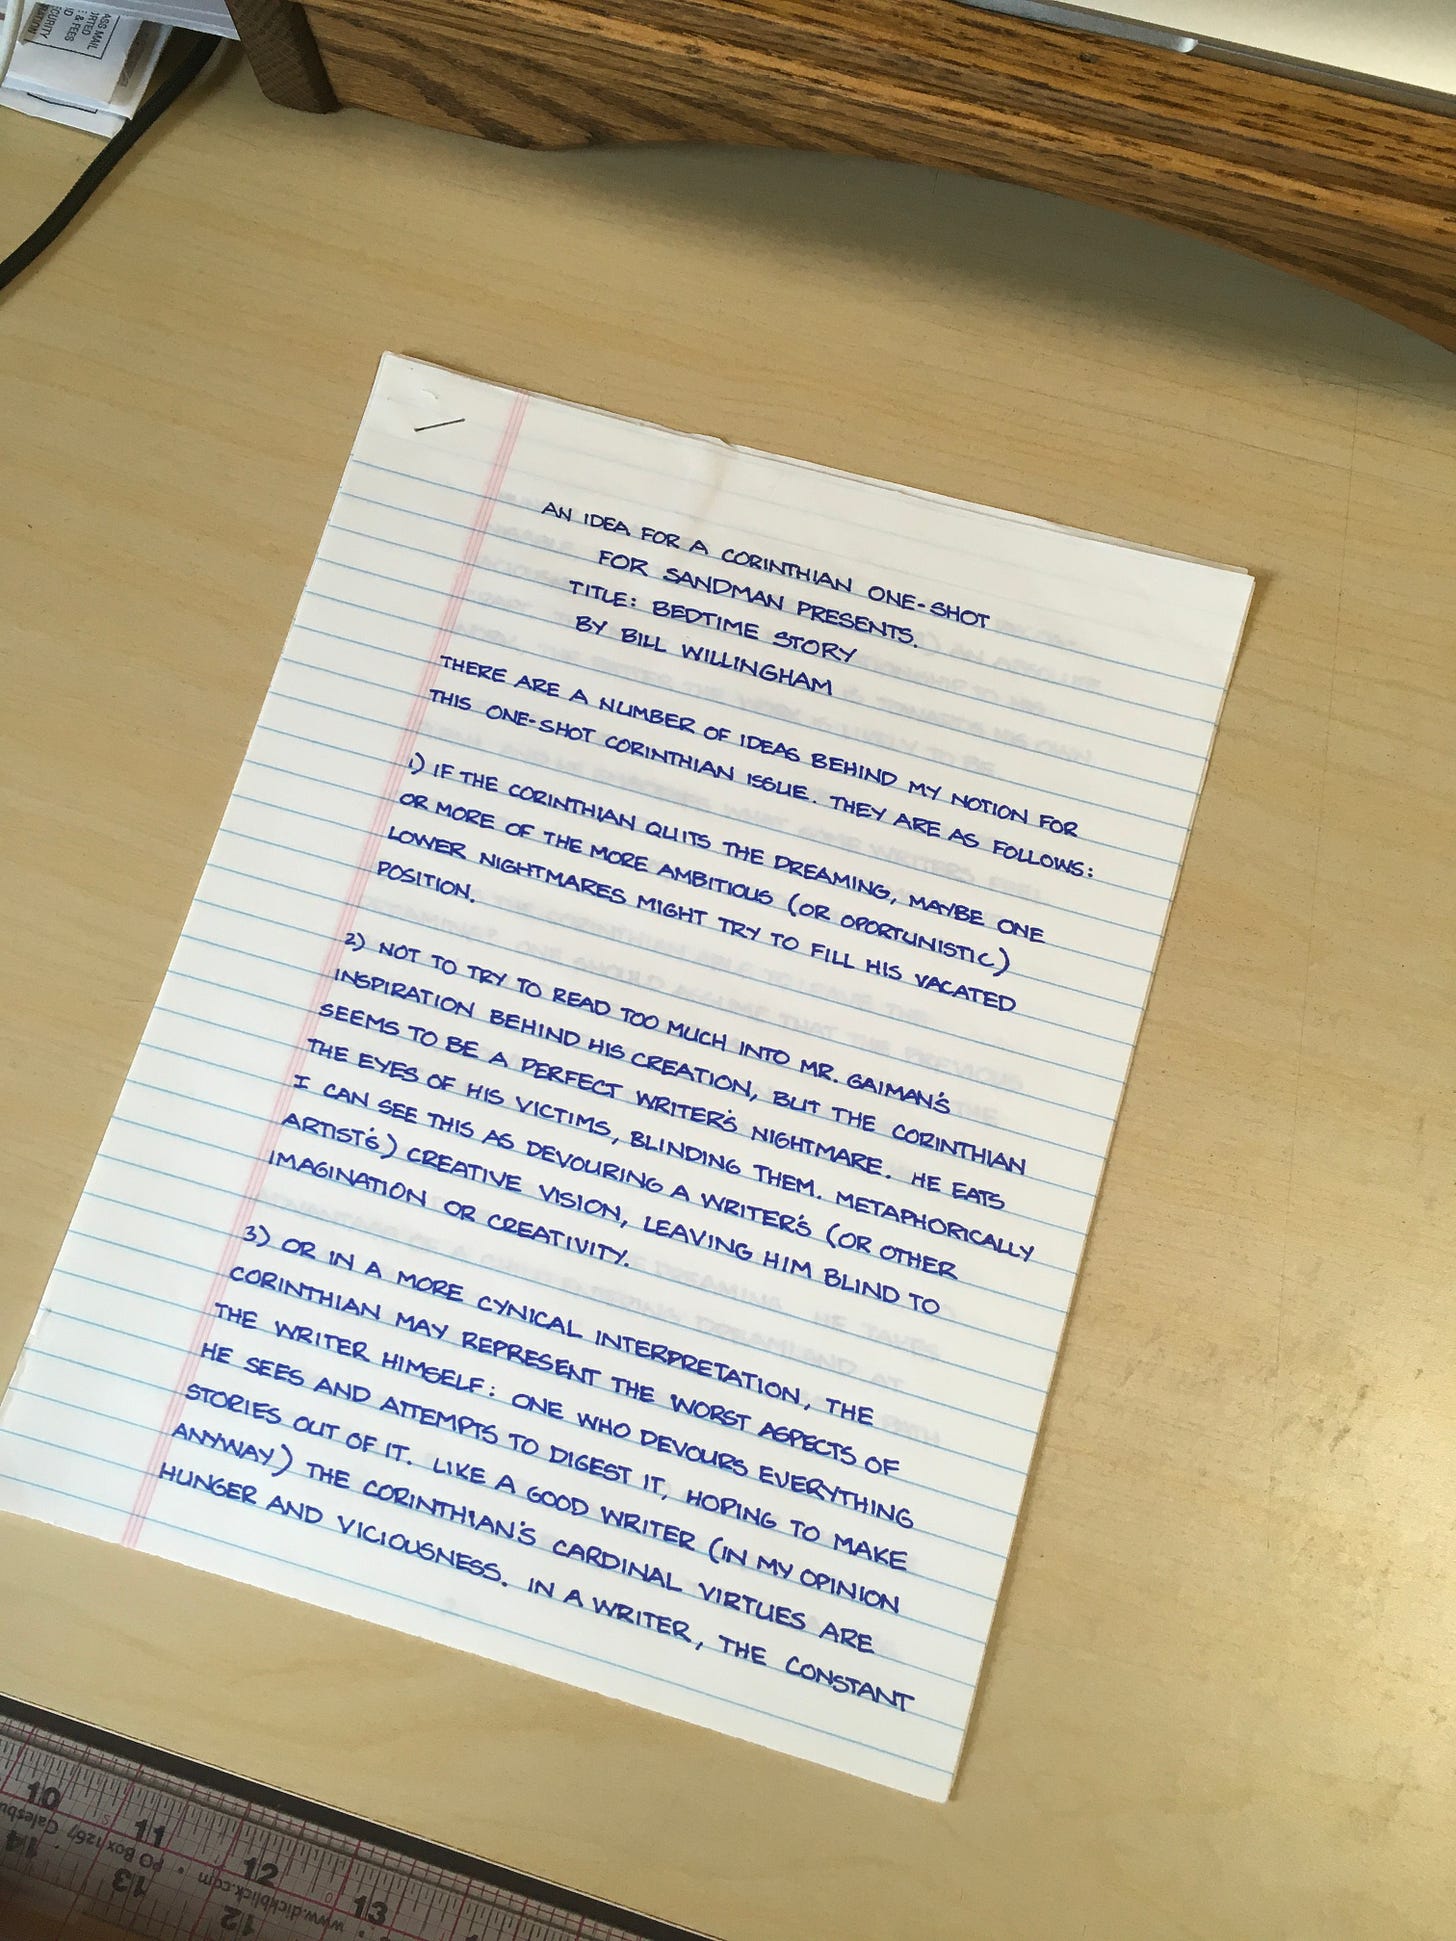 ASS MAIL
RTED
& FEES
ID
CURITY
RATION
AN IDEA FOR A CORINTHIAN ONE-SHOT
FOR SANDMAN PRESENTS.
TITLE: BEDTIME STORY
BY BILL WILLINGHAM
THERE ARE A NUMBER OF IDEAS BEHIND MY NOTION FOR
THIS ONE-SHOT CORINTHIAN ISSUE. THEY ARE AS FOLLOWS:
1) IF THE CORINTHIAN QUITS THE DREAMING, MAYBE ONE
OR MORE OF THE MORE AMBITIOUS (OR OPORTUNISTIC)
LOWER NIGHTMARES MIGHT TRY TO FILL HIS VACATED
POSITION.
2) NOT TO TRY TO READ TOO MUCH INTO MR. GAIMAN'S
INSPIRATION BEHIND HIS CREATION, BUT THE CORINTHIAN
SEEMS TO BE A PERFECT WRITER'S NIGHTMARE. HE EATS
THE EYES OF HIS VICTIMS, BLINDING THEM. METAPHORICALLY
I CAN SEE THIS AS DEVOURING A WRITER'S (OR OTHER
ARTIST'S) CREATIVE VISION, LEAVING HIM BLIND TO
IMAGINATION OR CREATIVITY.
3) OR IN A MORE CYNICAL INTERPRETATION, THE
CORINTHIAN MAY REPRESENT THE WORST ASPECTS OF
THE WRITER HIMSELF: ONE WHO DEVOURS EVERYTHING
HE SEES AND ATTEMPTS TO DIGEST IT, HOPING TO MAKE
STORIES OUT OF IT. LIKE A GOOD WRITER (IN MY OPINION
ANYWAY) THE CORINTHIAN'S CARDINAL VIRTUES ARE
HUNGER AND VICIOUSNESS. IN A WRITER, THE CONSTANT
10 11 12 13
www.dickblick.com • PO Box 1267 Galesbu
12 13 14